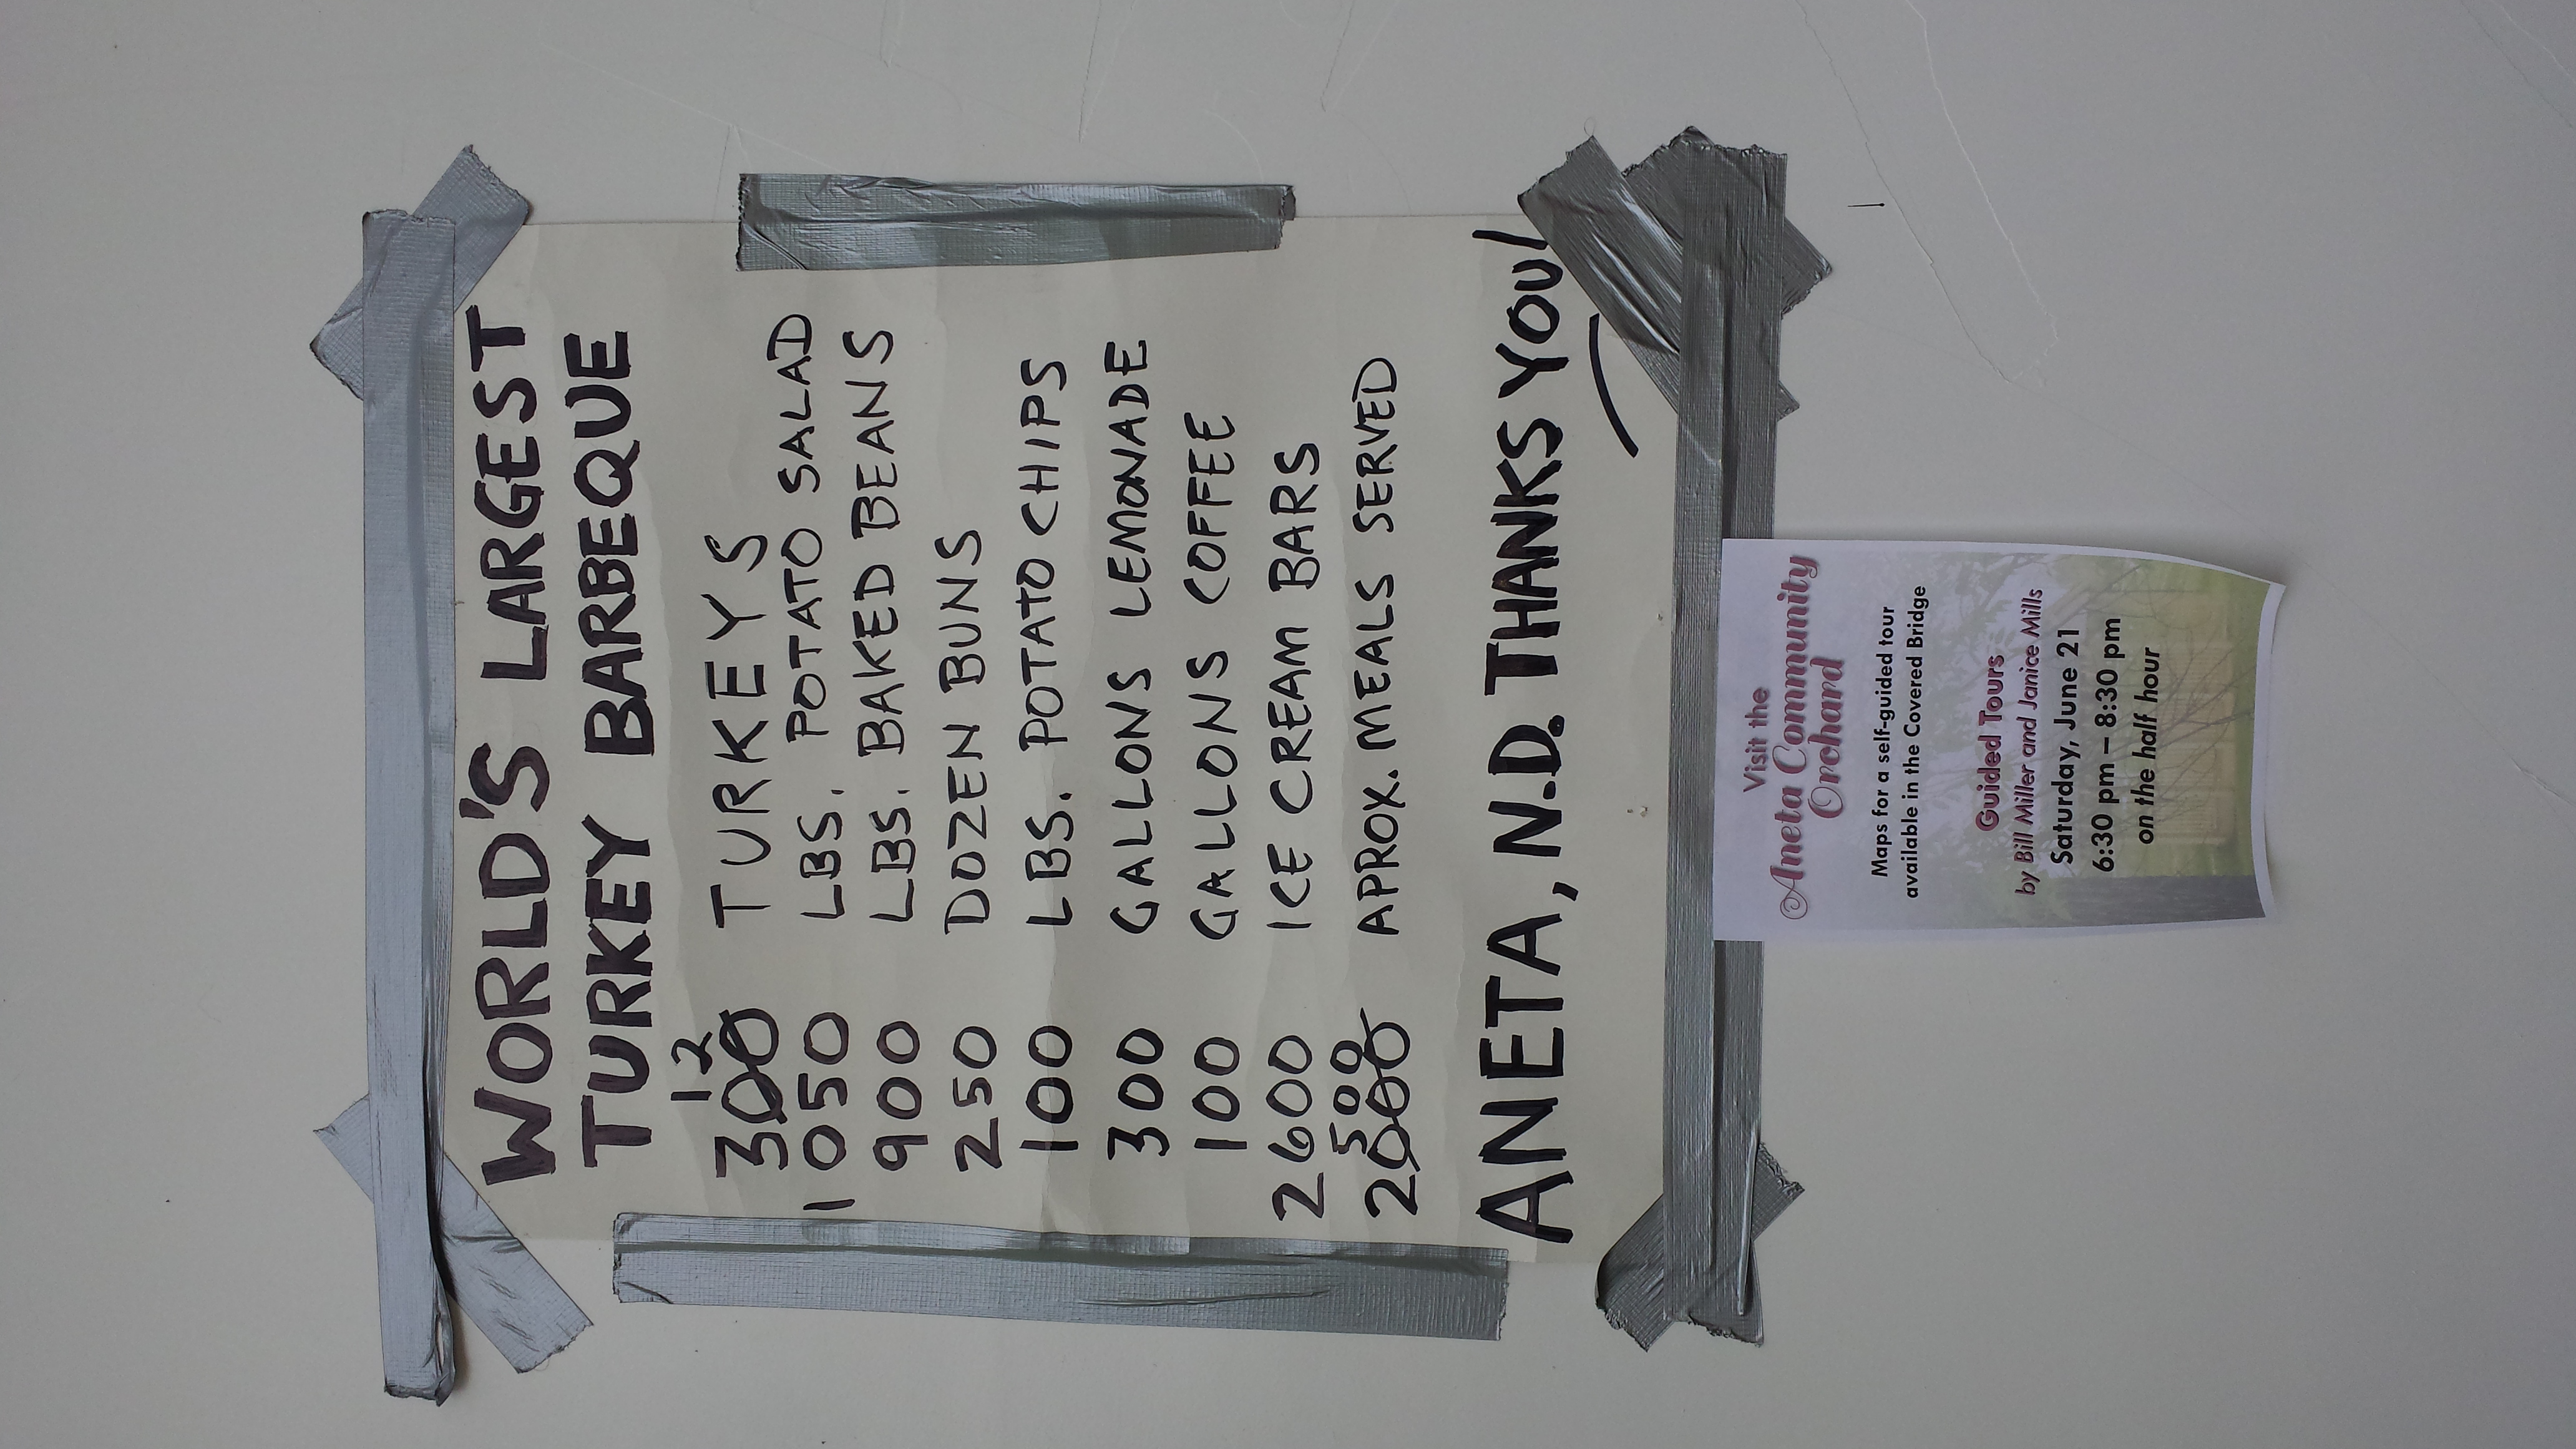 WORLD'S LARGEST
TURKEY BARBEQUE
12
300 TURKEYS
1050 LBS. POTATO SALAD
900 LBS. BAKED BEANS
250 DOZEN BUNS
100 LBS. POTATO CHIPS
300 GALLONS LEMONADE
100 GALLONS COFFEE
2600 ICE CREAM BARS
500
2000 APROX. MEALS SERVED
ANETA, N.D. THANKS YOU!
Visit the
Aneta Community
Orchard
Maps for a self-guided tour
available in the Covered Bridge
Guided Tours
by Bill Miller and Janice Mills
Saturday, June 21
6:30 pm – 8:30 pm
on the half hour